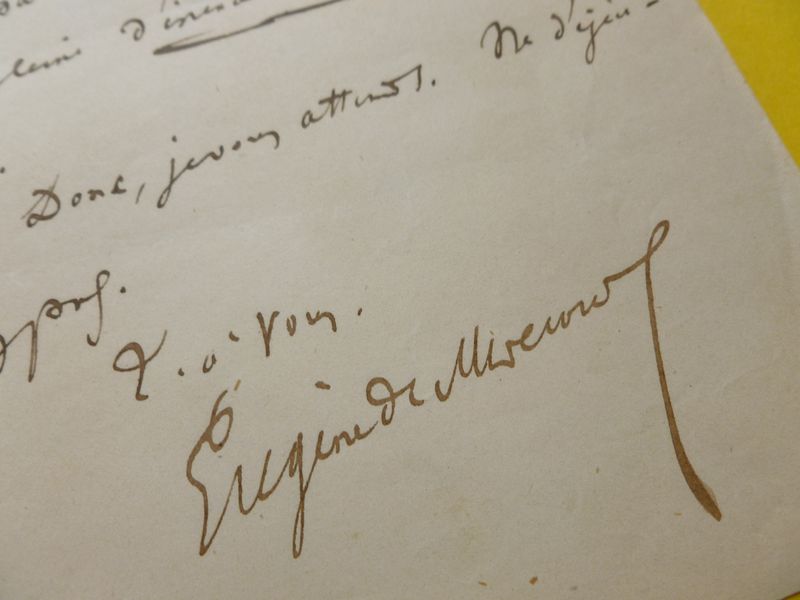 d'
Donc, je vous attends. Ne déjeu-
pas.
T. à Vous.
Eugène de Mirecourt